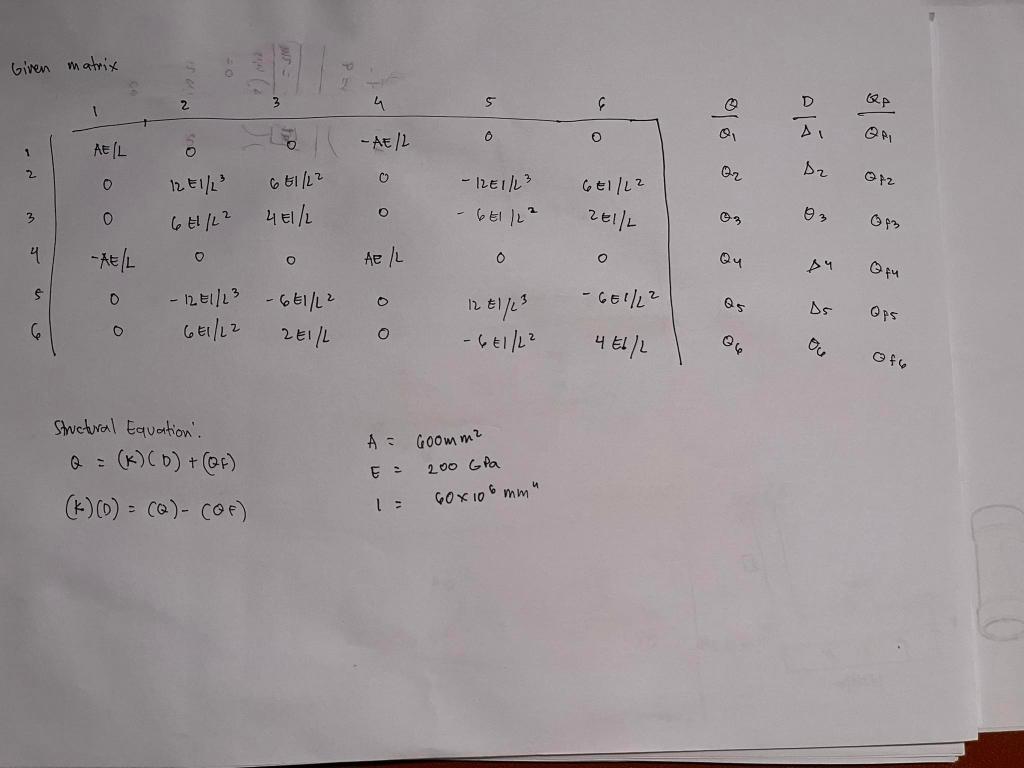 Given matrix
1 2 3 4 5 6 Q D QF
1 AE/L 0 0 -AE/L 0 0 Q1 Δ1 QF1
2 0 12EI/L³ 6EI/L² 0 -12EI/L³ 6EI/L² Q2 Δ2 QF2
3 0 6EI/L² 4EI/L 0 -6EI/L² 2EI/L Q3 θ3 QF3
4 -AE/L 0 0 AE/L 0 0 Q4 Δ4 QF4
5 0 -12EI/L³ -6EI/L² 0 12EI/L³ -6EI/L² Q5 Δ5 QF5
6 0 6EI/L² 2EI/L 0 -6EI/L² 4EI/L Q6 θ6 QF6
Structural Equation:
Q = (K)(D) + (QF)
(K)(D) = (Q) - (QF)
A = 600mm²
E = 200 GPa
I = 60x10⁶ mm⁴